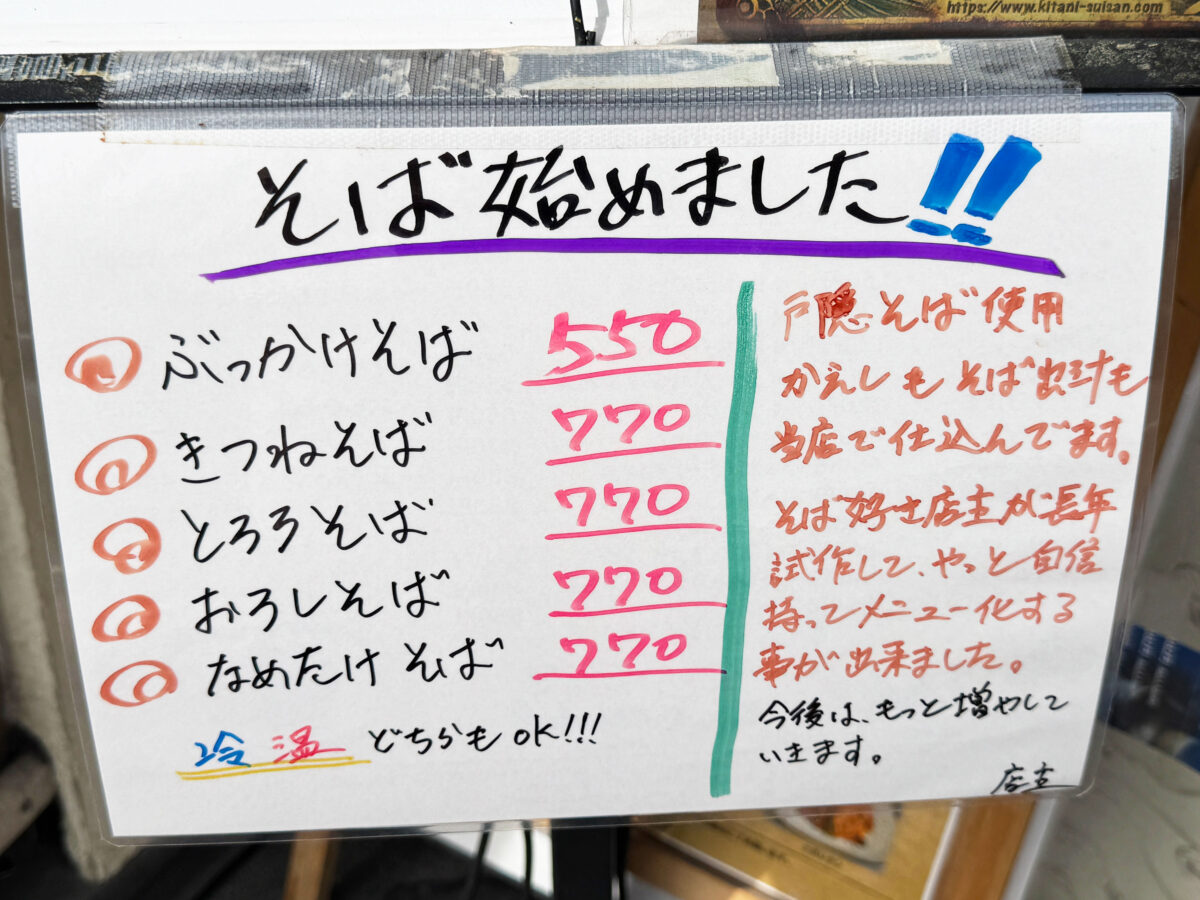 https://www.kitani-suisan.com
そば始めました!!
ぶっかけそば 550
きつねそば 770
とろろそば 770
おろしそば 770
なめたけそば 770
冷 温 どちらもOK!!!
戸隠そば使用
かえしもそば出汁も
当店で仕込んでます。
そば好き店主が長年
試作して、やっと自信
持ってメニュー化する
事が出来ました。
今後は、もっと増やして
いきます。
店主